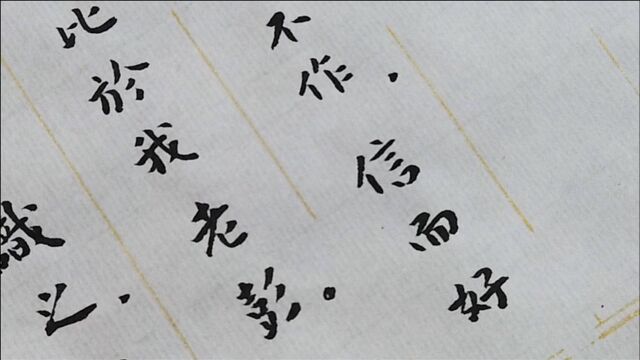 不作，信而好
比於我老彭。
識之，